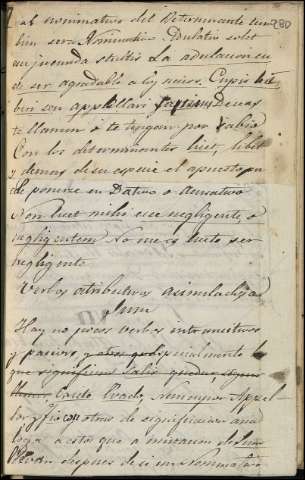 al nominativo del Determinante tam
bien sera Nominativo. Adulatio solet
280
esse jucunda stultis La adulacion su
de ser agradable a los necios. Cupis
beri son appellari sapiens Deseas
te llamen ó te tengan por sabio
Con los determinantes licet, libet
y demas de su especie el apuesto pu
de ponerse en Dativo o Acusativo
Non licet mihi esse negligente, o
negligentem No me es licito ser
negligente
Verbos atributivos asimilados a
sum
Hay no pocos verbos intransitivos
y pasivos y especialmente lo
que significan
Evado, Nominor Appel
lor y otros de significacion ana
loga a estos que a imitacion de Sum
llevan despues de si un Nominativo